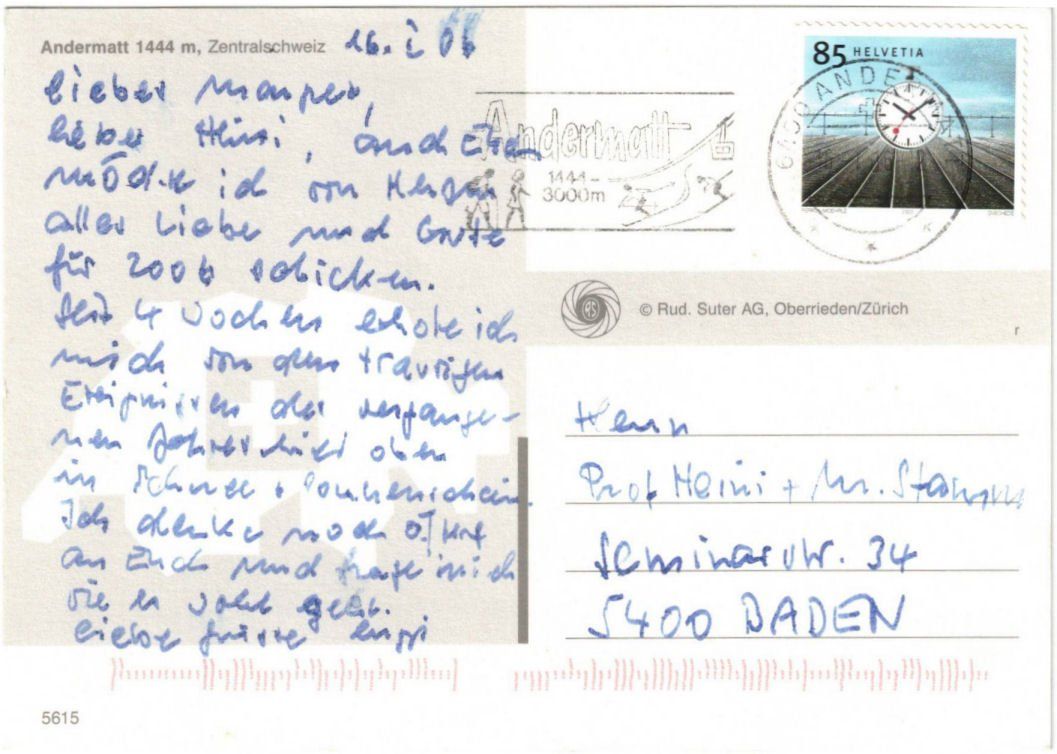 Andermatt 1444 m, Zentralschweiz 16. I 06
lieber
lieber Heini, auch Euch
möchte ich von Herzen
alles Liebe und Gute
für 2006 schicken.
Seit 4 Wochen erhole ich
mich von den traurigen
Ereignissen des vergange-
nen Jahres hier oben
in Schnee + Sonnenschein.
Ich denke noch öfters
an Euch und frage mich
wie es wohl geht.
liebe Grüsse
85 HELVETIA
6490 ANDERMATT
Andermatt
1444-
3000m
© Rud. Suter AG, Oberrieden/Zürich
r
Herrn
Prof Heini + M. Stamm
Seminarstr. 34
5400 BADEN
5615